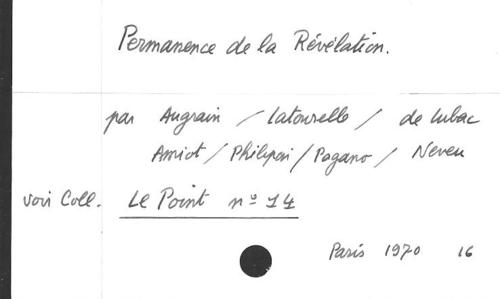 Permanence de la Révélation.
par Augrain / Latourelle / de Lubac
Amiot / Philipon / Pagano / Neveu
voir Coll. Le Point nº 14
Paris 1970 16